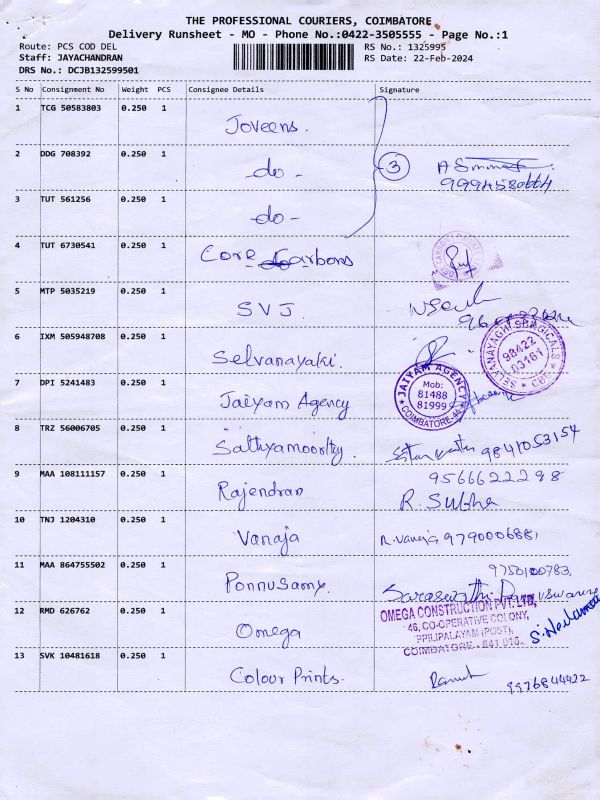 THE PROFESSIONAL COURIERS, COIMBATORE
Delivery Runsheet - MO - Phone No.:0422-3505555 - Page No.:1
Route: PCS COD DEL RS No.: 1325995
Staff: JAYACHANDRAN RS Date: 22-Feb-2024
DRS No.: DCJB132599501
S No Consignment No Weight PCS Consignee Details Signature
1 TCG 50583803 0.250 1 Joveens.
2 DDG 708392 0.250 1 -do- 3
3 TUT 561256 0.250 1 -do-
4 TUT 6730541 0.250 1 Core Carbons
5 MTP 5035219 0.250 1 SVJ
6 IXM 505948708 0.250 1 Selvanayaki
SELVANAYAGHI SURGICALS
98422
03161
CBE
7 DPI 5241483 0.250 1 Jaiyam Agency
JAIYAM AGENCY
Mob:
81488
81999
COIMBATORE-44
8 TRZ 56006705 0.250 1 Sathyamoorthy. 9841053154
9 MAA 108111157 0.250 1 Rajendran 9566622298
R. Subha
10 TNJ 1204310 0.250 1 Vanaja R. Vanaja 9790006881
11 MAA 864755502 0.250 1 Ponnusamy. 9750100783
Saraswathi Ponnuswamy
12 RMD 626762 0.250 1 Omega
OMEGA CONSTRUCTION PVT. LTD,
46, CO-OPERATIVE COLONY,
(POST),
COIMBATORE - 641 015.
13 SVK 10481618 0.250 1 Colour Prints. 9976844422